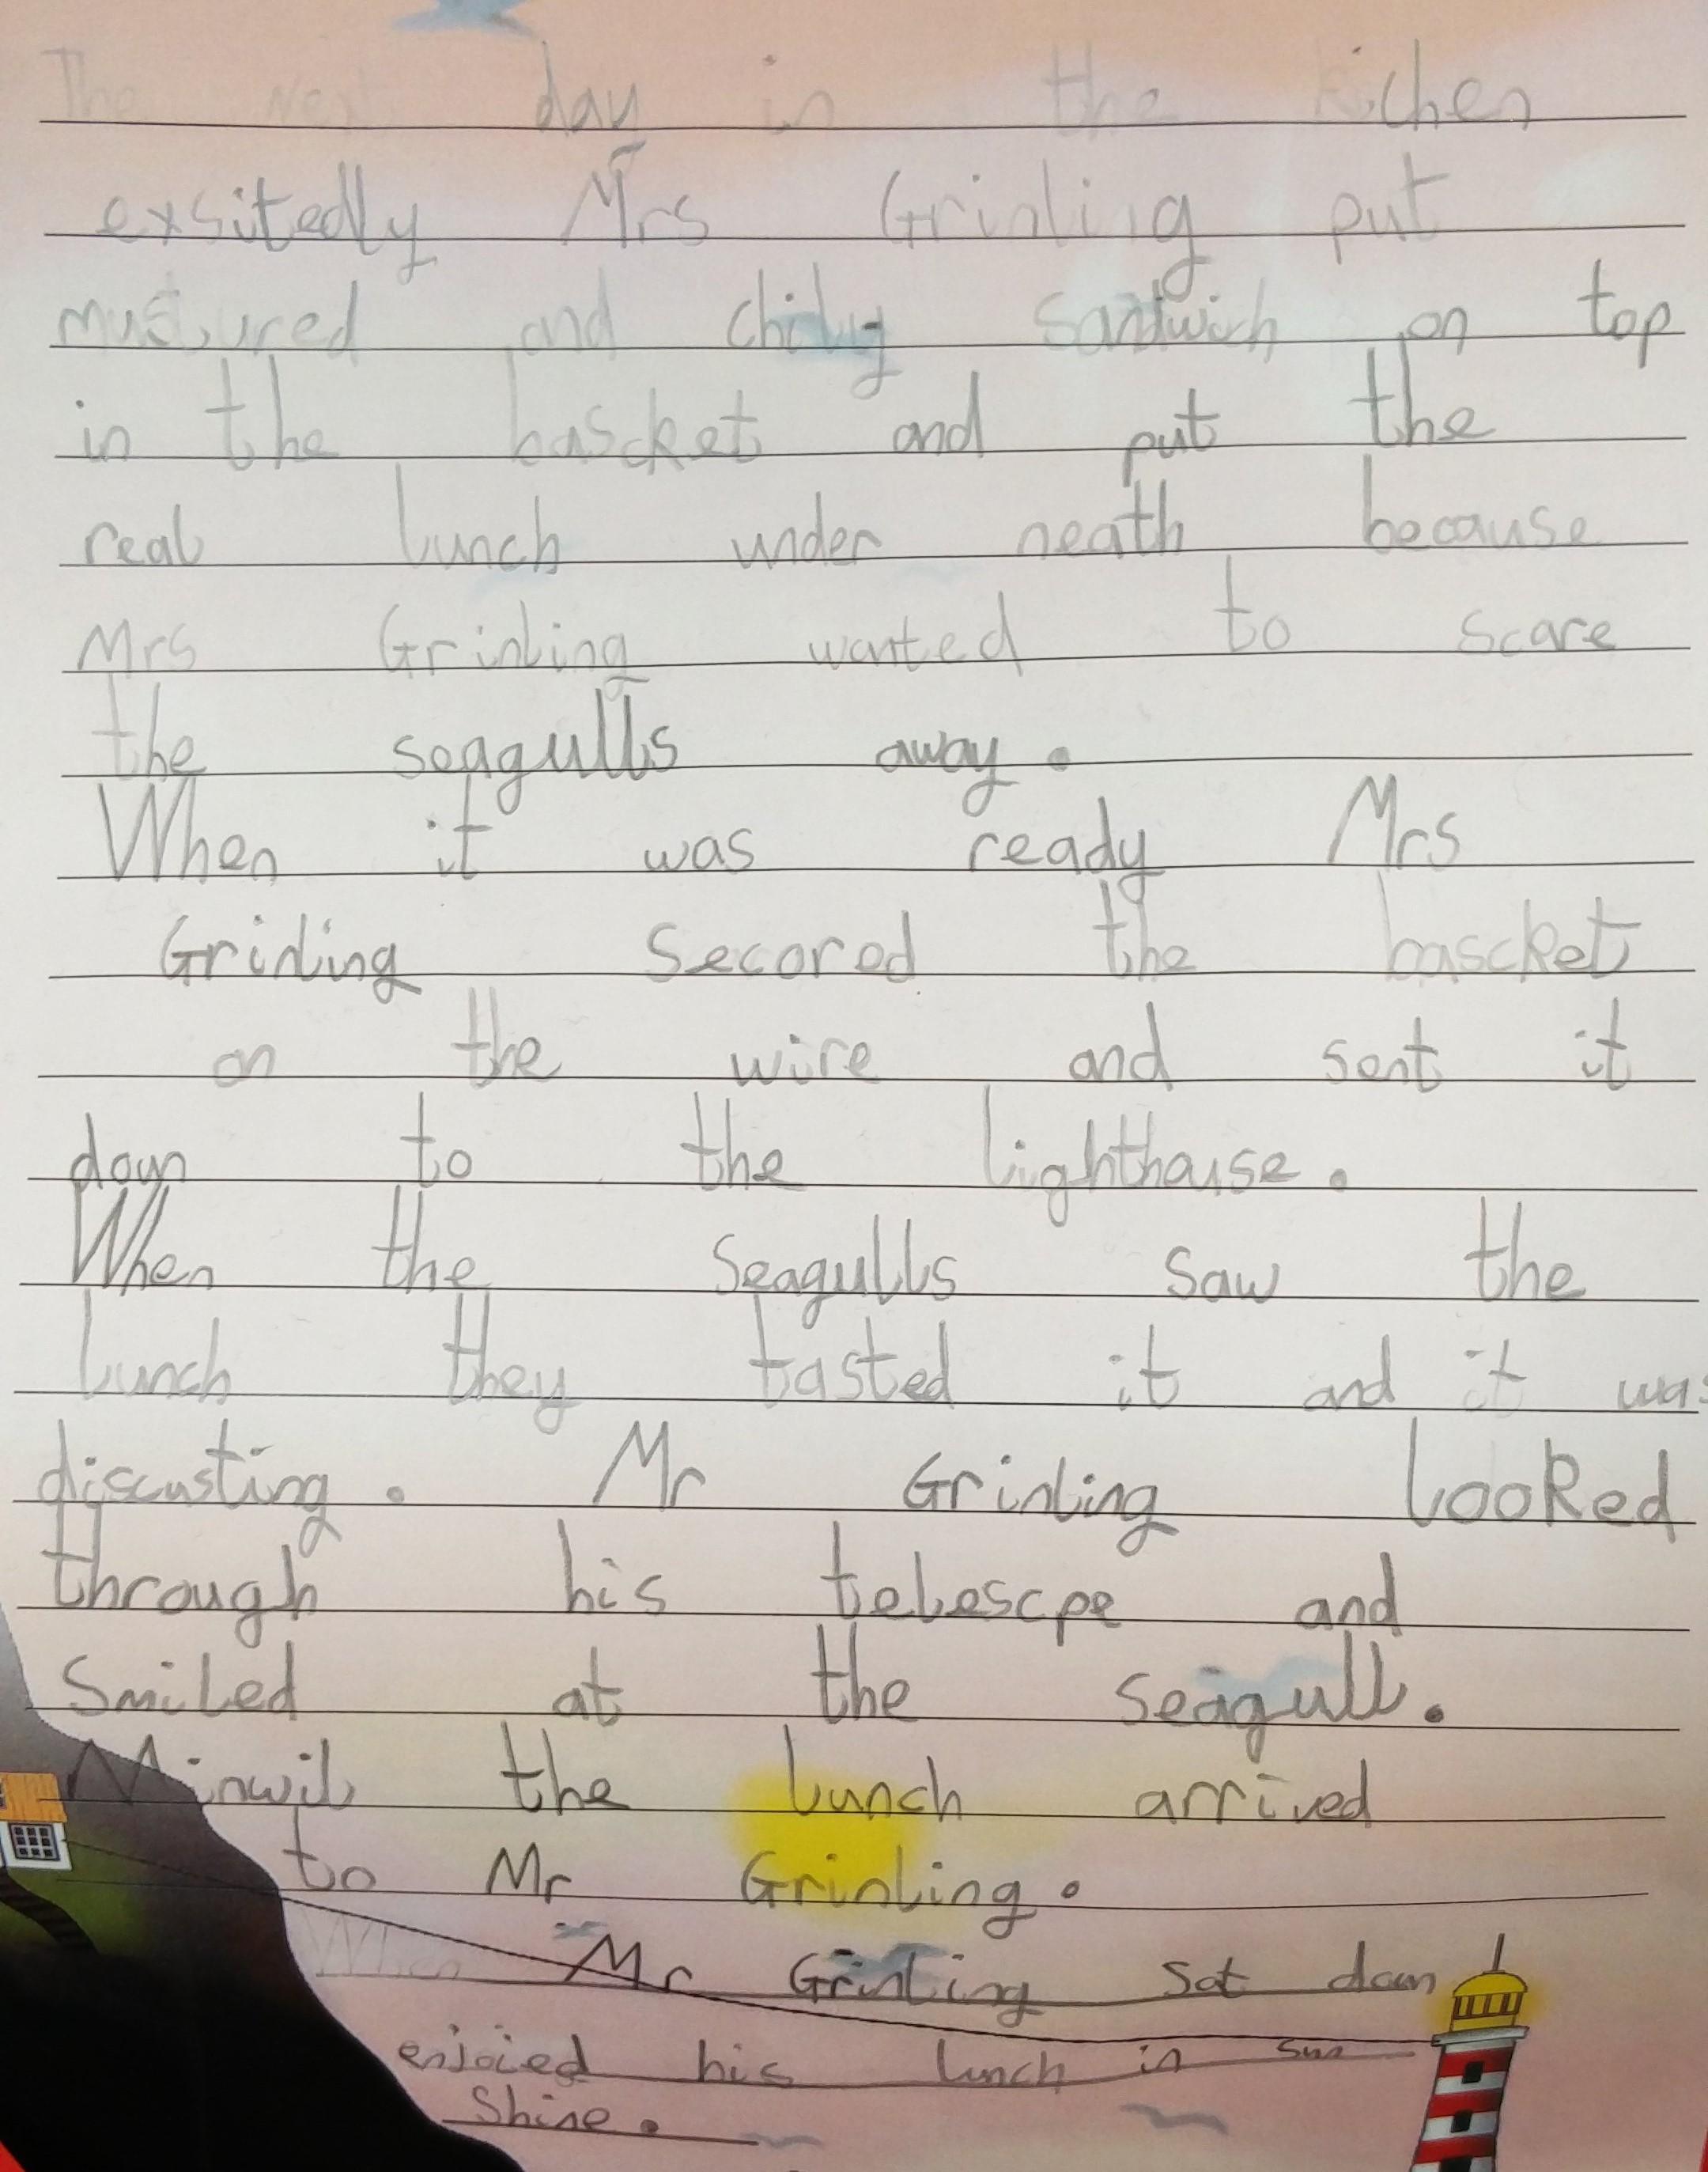 The Next day in the kichen
exsitedly Mrs Grinling put
mustured and chilly sandwich on top
in the bascket and put the
real lunch under neath because
Mrs Grinling wanted to scare
the seagulls away.
When it was ready Mrs
Grinling Secored the bascket
on the wire and sent it
down to the lighthouse.
When the Seagulls saw the
lunch they tasted it and it was
discusting. Mr Grinling looked
through his telescpe and
Smiled at the seagull.
Minwil the lunch arrived
to Mr Grinling.
When Mr Grinling sat down
enjoied his lunch in sun
Shine.